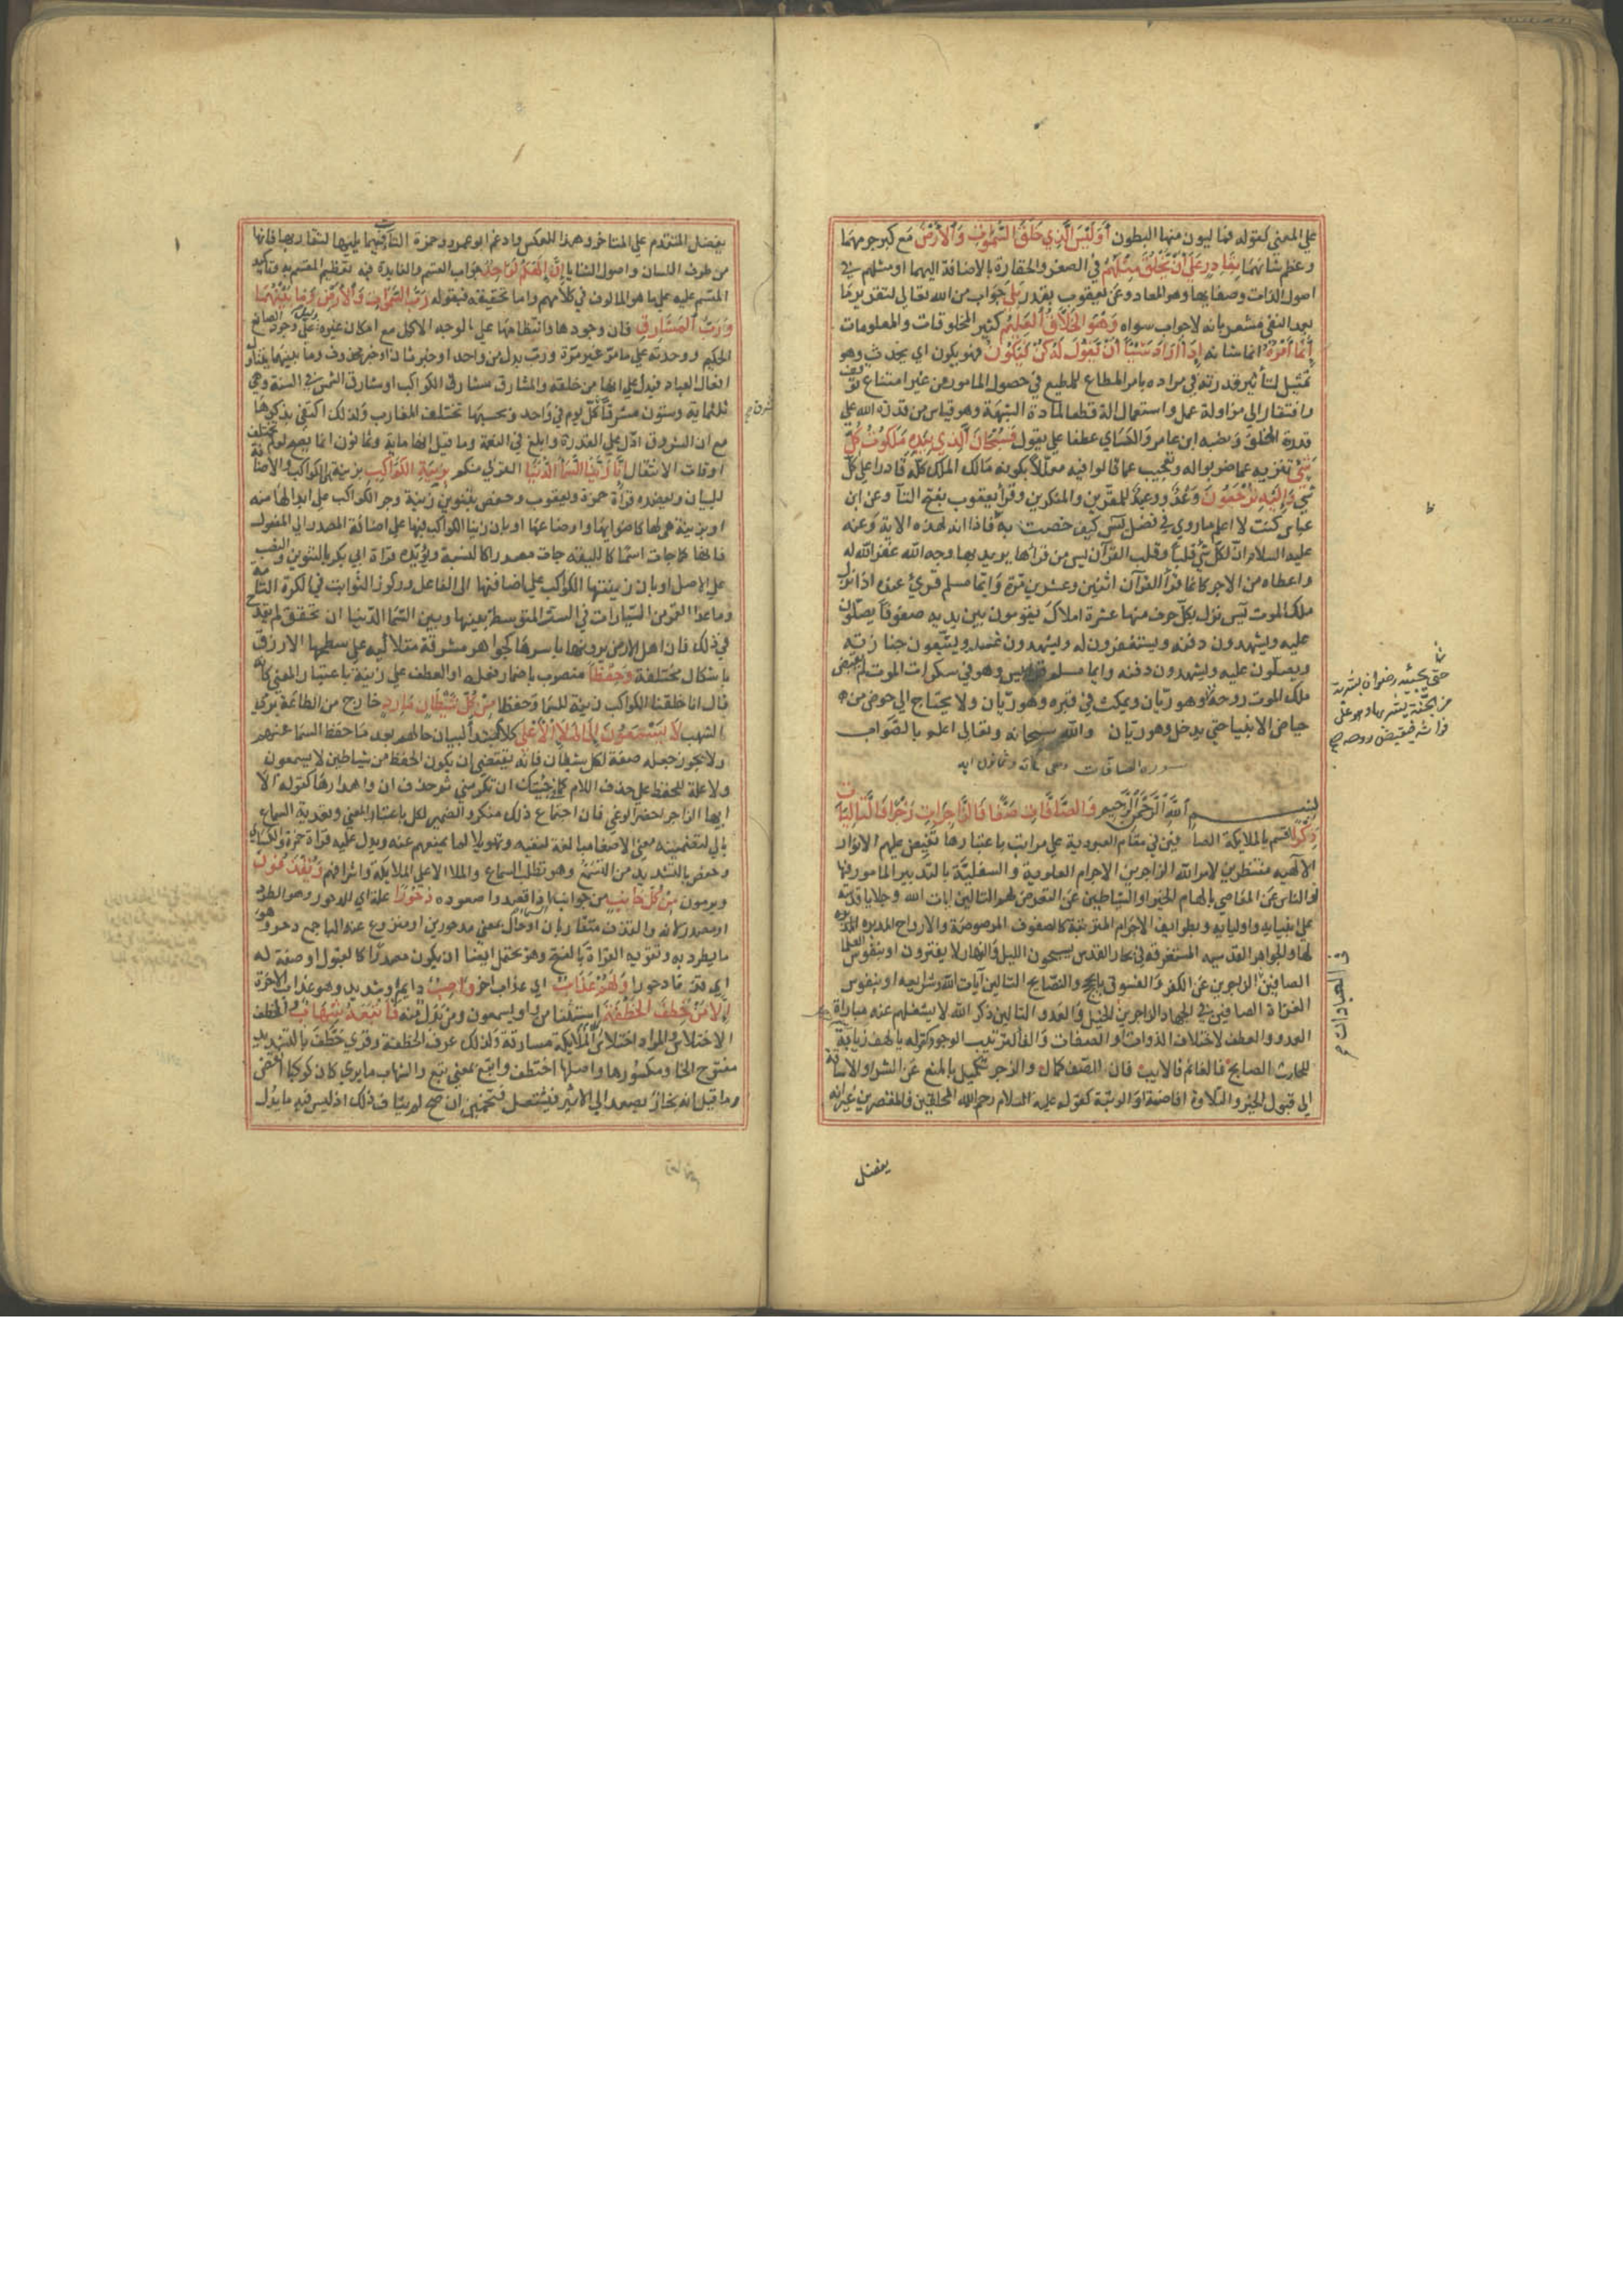 علي المعني كقوله فمالئون منها البطون أَوَلَيْسَ الَّذِي خَلَقَ السَّمٰوٰتِ وَالْاَرْضَ مع كبر جرمهما
وعظم شانهما بِقَادِرٍ عَلٰي أَنْ يَخْلُقَ مِثْلَهُمْ في الصغر والحقارة بالاضافة اليهما او مثلهم في
اصول الذات وصفاتها وهو المعاد وعن يعقوب يقدر بَلٰي جواب من الله تعالي لتقرير ما
بعد النفي مشعر بانه لا جواب سواه وَهُوَ الْخَلَّاقُ الْعَلِيْمُ كثير المخلوقات والمعلومات
إِنَّمَا أَمْرُهُ انما شانه إِذَا أَرَادَ شَيْئًا أَنْ يَقُولَ لَهُ كُنْ فَيَكُوْنُ فهو يكون اي يحدث وهو
تمثيل لتاثير قدرته في مراده بامر المطاع للمطيع في حصول المامور من غير امتناع وتوقف
وافتقار الي مزاولة عمل واستعمال الة قطعا لمادة الشبهة وهو قياس من قدرة الله علي
قدرة الخلق ونصبه ابن عامر والكسائي عطفا علي يقول فَسُبْحَانَ الَّذِي بِيَدِهِ مَلَكُوْتُ كُلِّ
شَيْءٍ تنزيه عما ضربوا له وتعجيب عما قالوا فيه معللا بكونه مالك الملك كله قادرا علي كل
شيء وَإِلَيْهِ تُرْجَعُوْنَ وعد ووعيد للمقرين والمنكرين وقرأ يعقوب بفتح التا وعن ابن
عباس كنت لا اعلم ما روي في فضل يس كيف خصت به فاذا انه لهذه الاية وعنه
عليه السلام ان لكل شي قلبا وقلب القرآن يس من قرأها يريد بها وجه الله غفر الله له
واعطاه من الاجر كانما قرأ القرآن اثنين وعشرين مرة وايما مسلم قرئ عنده اذا نزل
ملك الموت يس نزل بكل حرف منها عشرة املاك يقومون بين يديه صفوفا يصلون
عليه ويشهدون دفنه ويستغفرون له ويشهدون غسله ويتبعون جنازته
ويصلون عليه ويشهدون دفنه وايما مسلم قرأ يس وهو في سكرات الموت لم يقبض
ملك الموت روحه وهو ريان ويمكث في قبره وهو ريان ولا يحتاج الي حوض من
حياض الانبياء حتي يدخل وهو ريان والله سبحانه وتعالي اعلم بالصواب
سورة الصافات وهي مائة وثمانون اية
بِسْمِ اللهِ الرَّحْمٰنِ الرَّحِيْمِ وَالصَّافَّاتِ صَفًّا فَالزَّاجِرَاتِ زَجْرًا فَالتَّالِيَاتِ
ذِكْرًا اقسم بالملايكة الصافين في مقام العبودية علي مراتب باعتبارها تفيض عليهم الانوار
الالهية منتظرين لامر الله الزاجرين الاجرام العلوية والسفلية بالتدبير المامور فيها
او الناس عن المعاصي بالهام الخير او الشياطين عن التعرض لهم التالين ايات الله وجلايا قدسه
علي انبيايه واوليايه وبطوايف الاجرام المترتبة كالصفوف المرصوصة والارواح المدبرة
لها والجواهر القدسية المستغرقة في بحار القدس يسبحون الليل والنهار لا يفترون او بنفوس العلما
الصافين الزاجرين عن الكفر والفسوق بالحجج والنصايح التالين آيات الله وشرايعه او بنفوس
الغزاة الصافين في الجهاد الزاجرين الخيل والعدو التالين ذكر الله لا يشغلهم عنه مباراة
العدو والعطف لاختلاف الذوات او الصفات والفا لترتيب الوجود كقوله يا لهف زيابة
للحارث الصابح فالغانم فالايب فان الصف كمال والزجر تكميل بالمنع عن الشر او الاساقة
الي قبول الخير والتلاوة افاضته او الرتبة كقوله عليه السلام رحم الله المحلقين فالمقصرين غير انه
يفضل
حتي يجيئه رضوان بشربة
من الجنة يشربها وهو علي
فراشه فيقبض روحه صح
في العبادات
يفضل المتقدم علي المتاخر وهذا للعكس وادغم ابو عمرو وحمزة التاآت فيما يليها لتقاربها فانها
من طرف اللسان واصول الثنايا إِنَّ إِلٰهَكُمْ لَوَاحِدٌ جواب القسم والفايدة فيه تعظيم المقسم به وتاكيد
المقسم عليه علي ما هو المالوف في كلامهم واما تحقيقه فبقوله رَبُّ السَّمٰوَاتِ وَالْأَرْضِ وَمَا بَيْنَهُمَا
وَرَبُّ الْمَشَارِقِ فان وجودها وانتظامها علي الوجه الاكمل مع امكان غيره دليل علي وجود الصانع
الحكيم ووحدته علي ما مر غير مرة ورب بدل من واحد او خبر ثان او خبر محذوف وما بينهما يتناول
افعال العباد فيدل علي انها من خلقه والمشارق مشارق الكواكب او مشارق الشمس في السنة وهي
ثلثماية وستون مشرقا كل يوم في واحد وبحسبها تختلف المغارب ولذلك اكتفي بذكرها
مع ان الشروق ادل علي القدرة وابلغ في النعمة وما قيل انها ماية وثمانون انما يصح لو لم تختلف
اوقات الانتقال إِنَّا زَيَّنَّا السَّمَاءَ الدُّنْيَا القربي منكم بِزِيْنَةٍ الْكَوَاكِبِ بزينة هي الكواكب والاضافة
للبيان ويعضده قراة حمزة ويعقوب وحفص بتنوين زينة وجر الكواكب علي ابدالها منه
او بزينة هي لها كاضوائها واوضاعها او بان زينا الكواكب فيها علي اضافة المصدر الي المفعول
فانها كما جات اسما كالليقة جات مصدرا كالنسبة ويؤيده قراة ابي بكر بالتنوين والنصب
علي الاصل او بان زينتها الكواكب علي اضافتها الي الفاعل وركوز الثوابت في الكرة الثامنة
وما عدا القمر من السيارات في الست المتوسطة بينها وبين السما الدنيا ان تحقق لم يقدح
في ذلك فان اهل الارض يرونها باسرها كجواهر مشرقة متلالية علي سطحها الازرق
باشكال مختلفة وَحِفْظًا منصوب باضمار فعله او العطف علي زينة باعتبار المعني كانه
قال انا خلقنا الكواكب زينة للسما وحفظا مِنْ كُلِّ شَيْطَانٍ مَارِدٍ خارج من الطاعة برمي
الشهب لَا يَسَّمَّعُوْنَ إِلَي الْمَلَإِ الْأَعْلٰي كلام مبتدأ لبيان حالهم بعد ما حفظ السما عنهم
ولا يجوز جعله صفة لكل شيطان فانه يقتضي ان يكون الحفظ من شياطين لا يسمعون
ولا علة للحفظ علي حذف اللام كما في جئتك ان تكرمني ثم حذف ان واهدارها كقوله الا
ايها الزاجري احضر الوغي فان اجتماع ذلك منكر والضمير لكل باعتبار المعني وتعدية السماع
بالي لتضمينه معني الاصغا مبالغة لنفيه وتهويلا لما يمنعهم عنه ويدل عليه قراة حمزة والكسائي
وحفص بالتشديد من التسمع وهو تطلب السماع والملا الاعلي الملايكة واشرافهم وَيُقْذَفُوْنَ
ويرمون مِنْ كُلِّ جَانِبٍ من جوانب السما اذا قصدوا صعوده دُحُوْرًا علة اي للدحور وهو الطرد
او مصدر لانه والقذف متقاربان او حال بمعني مدحورين او منزوع عنه البا جمع دحر وهو
ما يطرد به ويقويه القراة بالفتح وهو يحتمل ايضا ان يكون مصدرا كالقبول او صفة له
اي قذفا دحورا وَلَهُمْ عَذَابٌ اي عذاب اخر وَاصِبٌ دايم او شديد وهو عذاب الاخرة
إِلَّا مَنْ خَطِفَ الْخَطْفَةَ استثنا من واو يسمعون ومن بدل منه فَأَتْبَعَهُ شِهَابٌ والخطف
الاختلاس والمراد اختلاس كلام الملايكة مسارقة ولذلك عرف الخطفة وقري خطّف بالتشديد
مفتوح الخا ومكسورها واصلها اختطف واتبع بمعني تبع والشهاب ما يري كان كوكبا انقض
وما قيل انه بخار يصعد الي الاثير فيشتعل فتخمين ان صح لم يناف ذلك اذ ليس فيه ما يدل